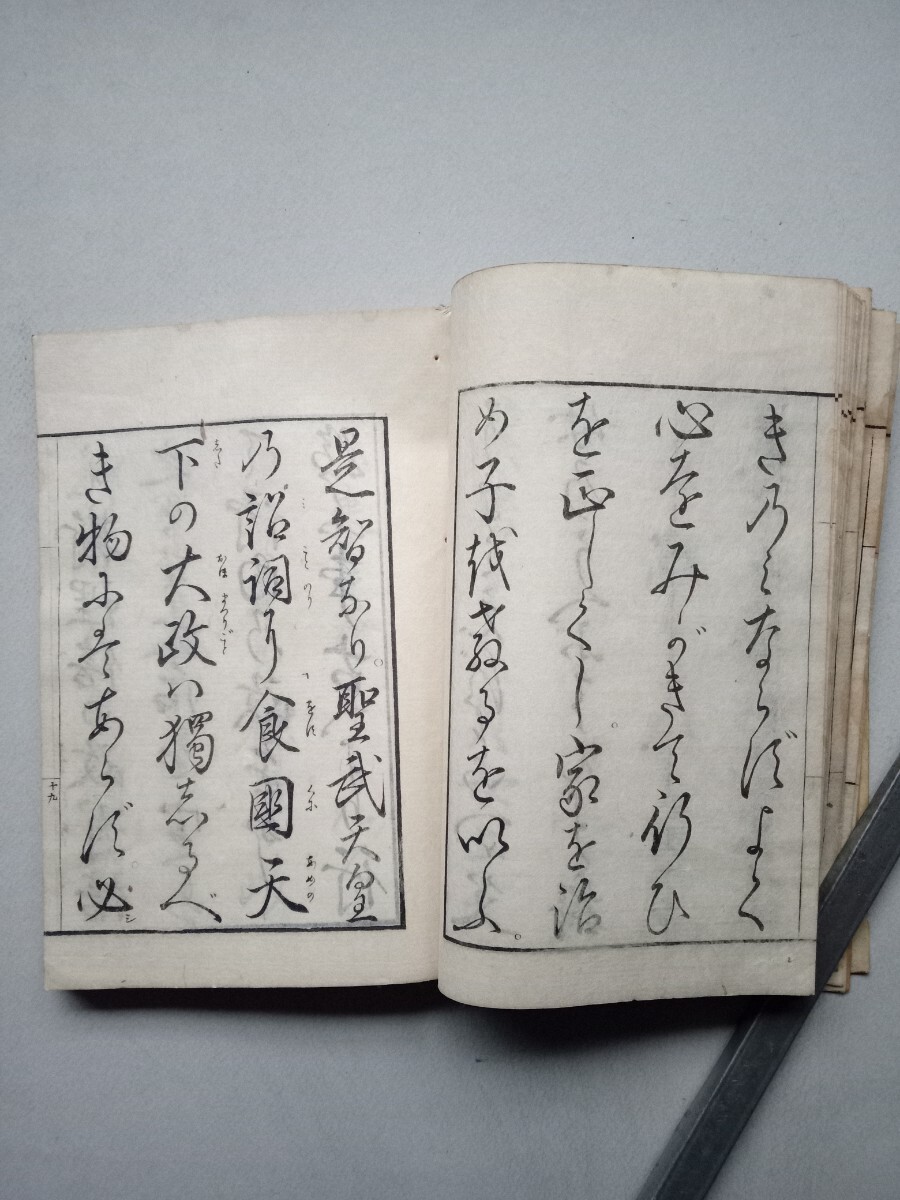 きのみならずよく
心をみがきて行ひ
を正しくし。家を治
め子を教るを以ふ。
是智なり。聖武天皇
乃詔詞に食國天
下の大政は獨志るべ
き物にはあらず。必
十九